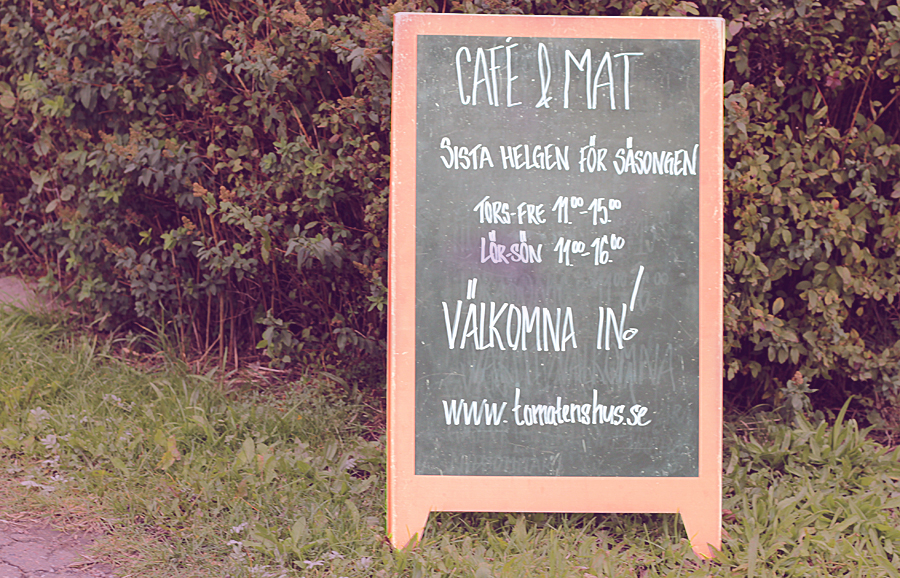 CAFÉ & MAT
SISTA HELGEN FÖR SÄSONGEN
TORS-FRE 11.00-15.00
LÖR-SÖN 11.00-16.00
VÄLKOMNA IN!
www.tomatenshus.se